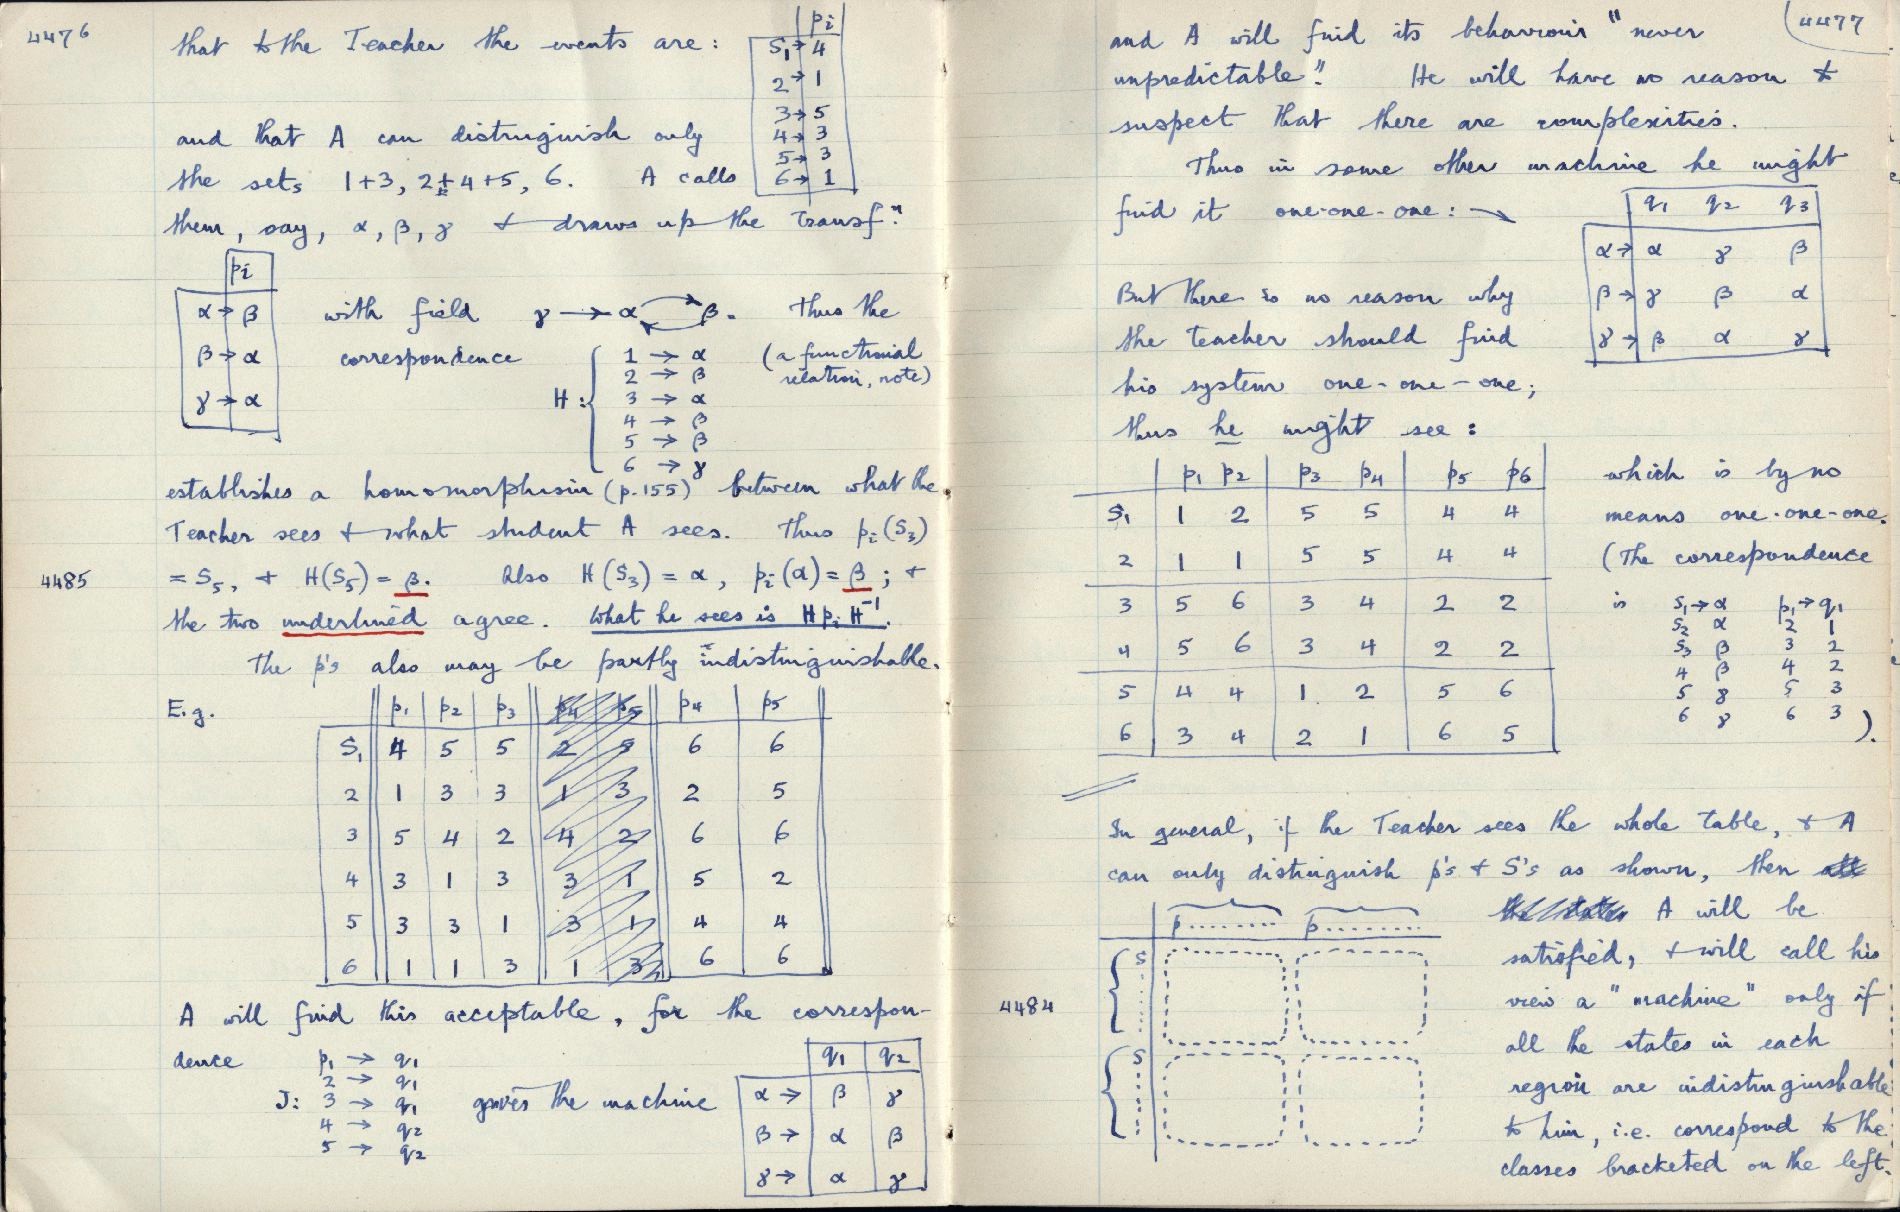 4476
that to the Teacher the events are:
pi
S1→ 4
2→ 1
3→ 5
4→ 3
5→ 3
6→ 1
and that A can distinguish only
the sets 1+3, 2+4+5, 6. A calls
them, say, α, β, γ + draws up the Transfn.
pi
α→ β
β→ α
γ→ α
with field γ → α β. Thus the
correspondence
H:
1 → α
2 → β
3 → α
4 → β
5 → β
6 → γ
(a functional
relation, note)
establishes a homomorphism (p.155) between what the
Teacher sees + what student A sees. Thus pi(S3)
4485
= S5, + H(S5) = β. Also H(S3) = α, pi(α) = β; +
the two underlined agree. What he sees is H pi H⁻¹.
The p's also may be partly indistinguishable.
E.g.
p1 p2 p3 p4 p5 p4 p5
S1 4 5 5 2 5 6 6
2 1 3 3 1 3 2 5
3 5 4 2 4 2 6 6
4 3 1 3 3 1 5 2
5 3 3 1 3 1 4 4
6 1 1 3 1 3 6 6
A will find this acceptable, for the correspon-
dence
J:
p1 → q1
2 → q1
3 → q1
4 → q2
5 → q2
gives the machine
q1 q2
α→ β γ
β→ α β
γ→ α γ
4477
and A will find its behaviour "never
unpredictable". He will have no reason to
suspect that there are complexities.
Thus in some other machine he might
find it one-one-one: →
q1 q2 q3
α→ α γ β
β→ γ β α
γ→ β α γ
But there is no reason why
the teacher should find
his system one-one-one;
thus he might see:
p1 p2 p3 p4 p5 p6
S1 1 2 5 5 4 4
2 1 1 5 5 4 4
3 5 6 3 4 2 2
4 5 6 3 4 2 2
5 4 4 1 2 5 6
6 3 4 2 1 6 5
which is by no
means one-one-one.
(The correspondence
is S1→α p1→q1
S2 α 2 1
S3 β 3 2
4 β 4 2
5 γ 5 3
6 γ 6 3
).
In general, if the Teacher sees the whole table, + A
can only distinguish p's + S's as shown, then all
the states A will be
satisfied, + will call his
4484
view a "machine" only if
all the states in each
region are indistinguishable
to him, i.e. correspond to the
classes bracketed on the left.
p........ p........
S
S